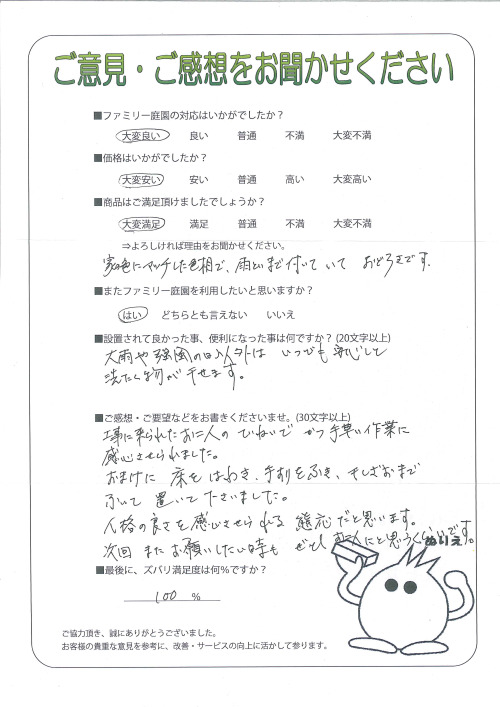 ご意見・ご感想をお聞かせください
■ファミリー庭園の対応はいかがでしたか？
大変良い 良い 普通 不満 大変不満
■価格はいかがでしたか？
大変安い 安い 普通 高い 大変高い
■商品はご満足頂けましたでしょうか？
大変満足 満足 普通 不満 大変不満
⇒よろしければ理由をお聞かせください。
家の色にマッチした色相で、雨どいまで付いていて おどろきです。
■またファミリー庭園を利用したいと思いますか？
はい どちらとも言えない いいえ
■設置されて良かった事、便利になった事は何ですか？(20文字以上)
大雨や強風の日以外は いつでも安心して
洗たく物が干せます。
■ご感想・ご要望などをお書きくださいませ。(30文字以上)
工事に来られたお二人の ていねいで かつ手早い作業に
感心させられました。
おまけに 床を はわき、手すりをふき、干しざおまで
ふいて 置いて下さいました。
人格の良さを感じさせられる 態応だと思います。
次回 またお願いしたい時も ぜひ お二人にと思うくらいです。
ぬりえ
■最後に、ズバリ満足度は何%ですか？
100 %
ご協力頂き、誠にありがとうございました。
お客様の貴重な意見を参考に、改善・サービスの向上に活かして参ります。